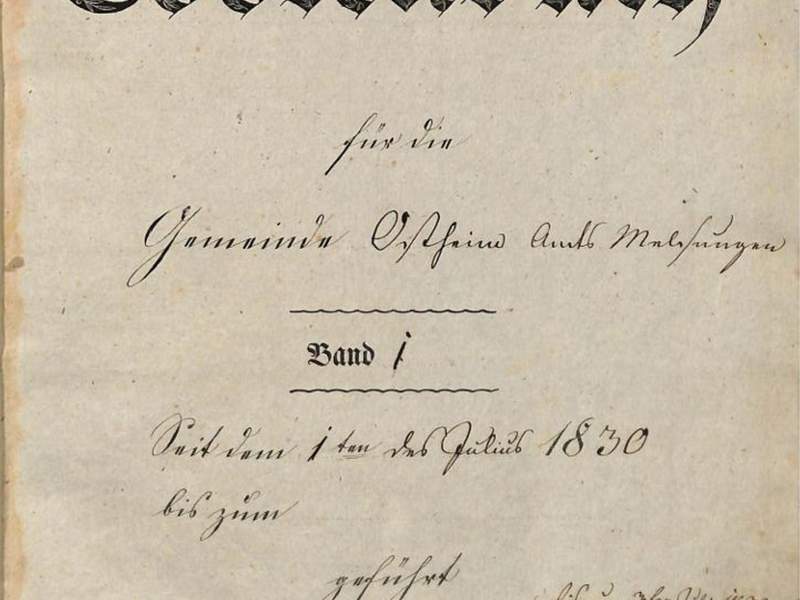 für die
Gemeinde Ostheim Amts Melsungen
Band 1
Seit dem 1ten des Julius 1830
bis zum
geführt